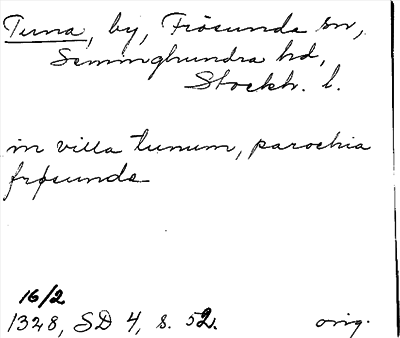 Tuna, by, Frösunda sn,
Seminghundra hd,
Stockh. l.
in villa tunum, parochia
frøsunda
16/2
1328, SD 4, s. 52.
orig.